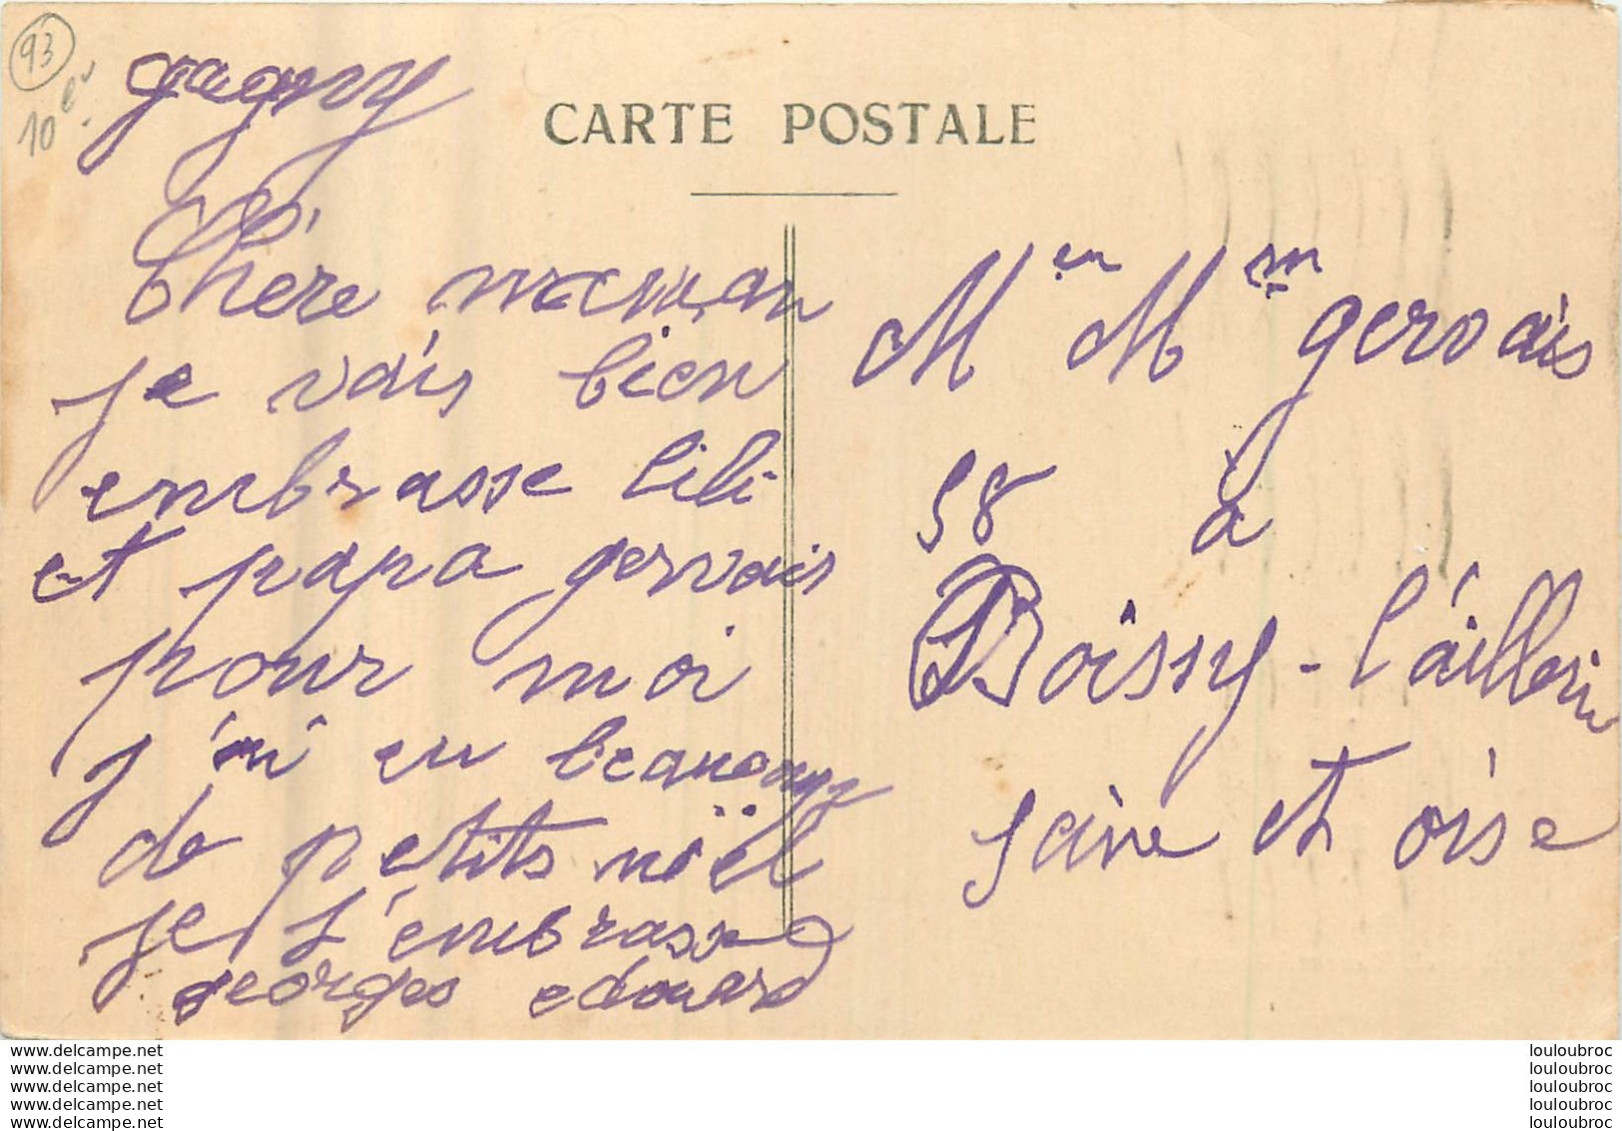 93
10 e
gagny
CARTE POSTALE
Chère maman
je vais bien
embrasse lili
et papa gervais
pour moi
j'ai eu beaucoup
de petits nöel
je t'embrasse
georges edouard
M en Mm gervais
58 à
Boissy-l'aillerie
seine et oise
www.delcampe.net
www.delcampe.net
www.delcampe.net
www.delcampe.net
www.delcampe.net
louloubroc
louloubroc
louloubroc
louloubroc
louloubroc